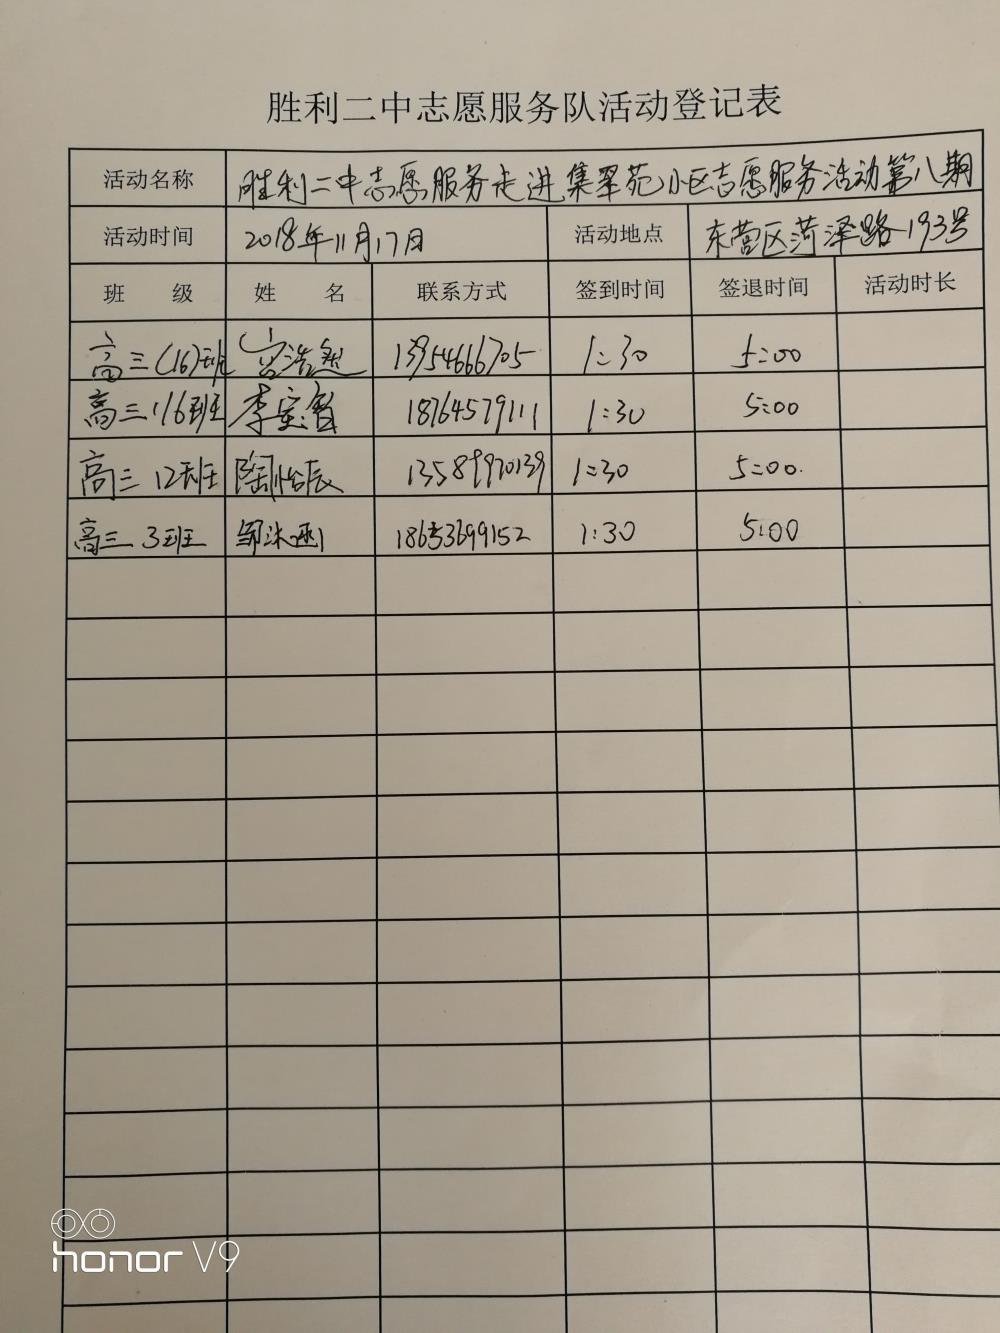 胜利二中志愿服务队活动登记表
活动名称 胜利二中志愿服务走进集翠苑小区志愿服务活动第八期
活动时间 2018年11月17日 活动地点 东营区菏泽路193号
班 级 姓 名 联系方式 签到时间 签退时间 活动时长
高三(16)班 13954666705 1:30 5:00
高三16班 李宝智 18764579111 1:30 5:00
高三 12班 陶怡辰 13589970139 1:30 5:00.
高三 3班 邹沐函 1:30 5:00
honor V9